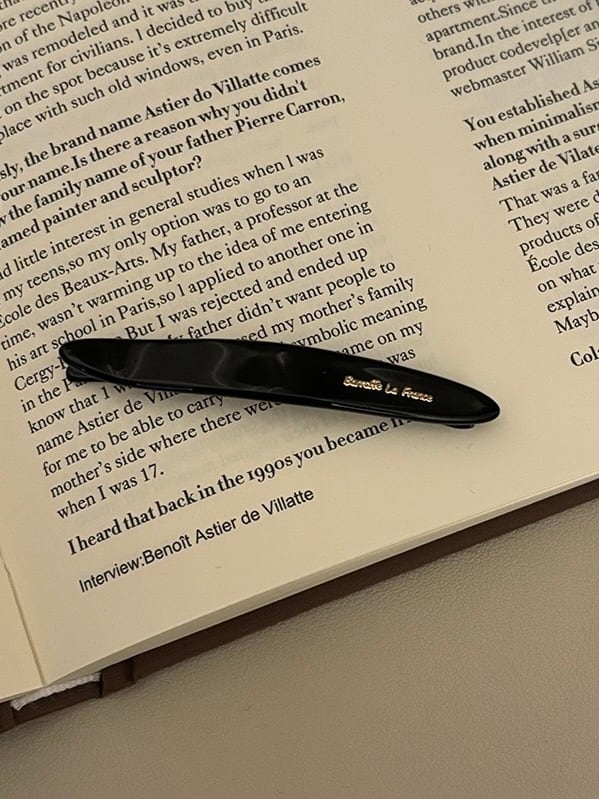 of the Napoleon
was remodeled and it was
tment for civilians. I decided to buy
on the spot because it's extremely difficult
place with such old windows, even in Paris.
sly, the brand name Astier do Villatte comes
our name.Is there a reason why you didn't
the family name of your father Pierre Carron,
amed painter and sculptor?
d little interest in general studies when I was
my teens,so my only option was to go to an
École des Beaux-Arts. My father, a professor at the
time, wasn't warming up to the idea of me entering
his art school in Paris,so I applied to another one in
Cergy- But I was rejected and ended up
in the my father didn't want people to
know that I used my mother's family
name Astier de symbolic meaning
for me to be able to carry name on my
mother's side where there were was
when I was 17.
I heard that back in the 1990s you became
Interview:Benoît Astier de Villatte
others
apartment.Since
brand.In the interest of
product codevelpfer an
webmaster William
You established
when minimalism
along with a
Astier de
That was a
They were
products of
École des
on what
explain
Barraffe La France